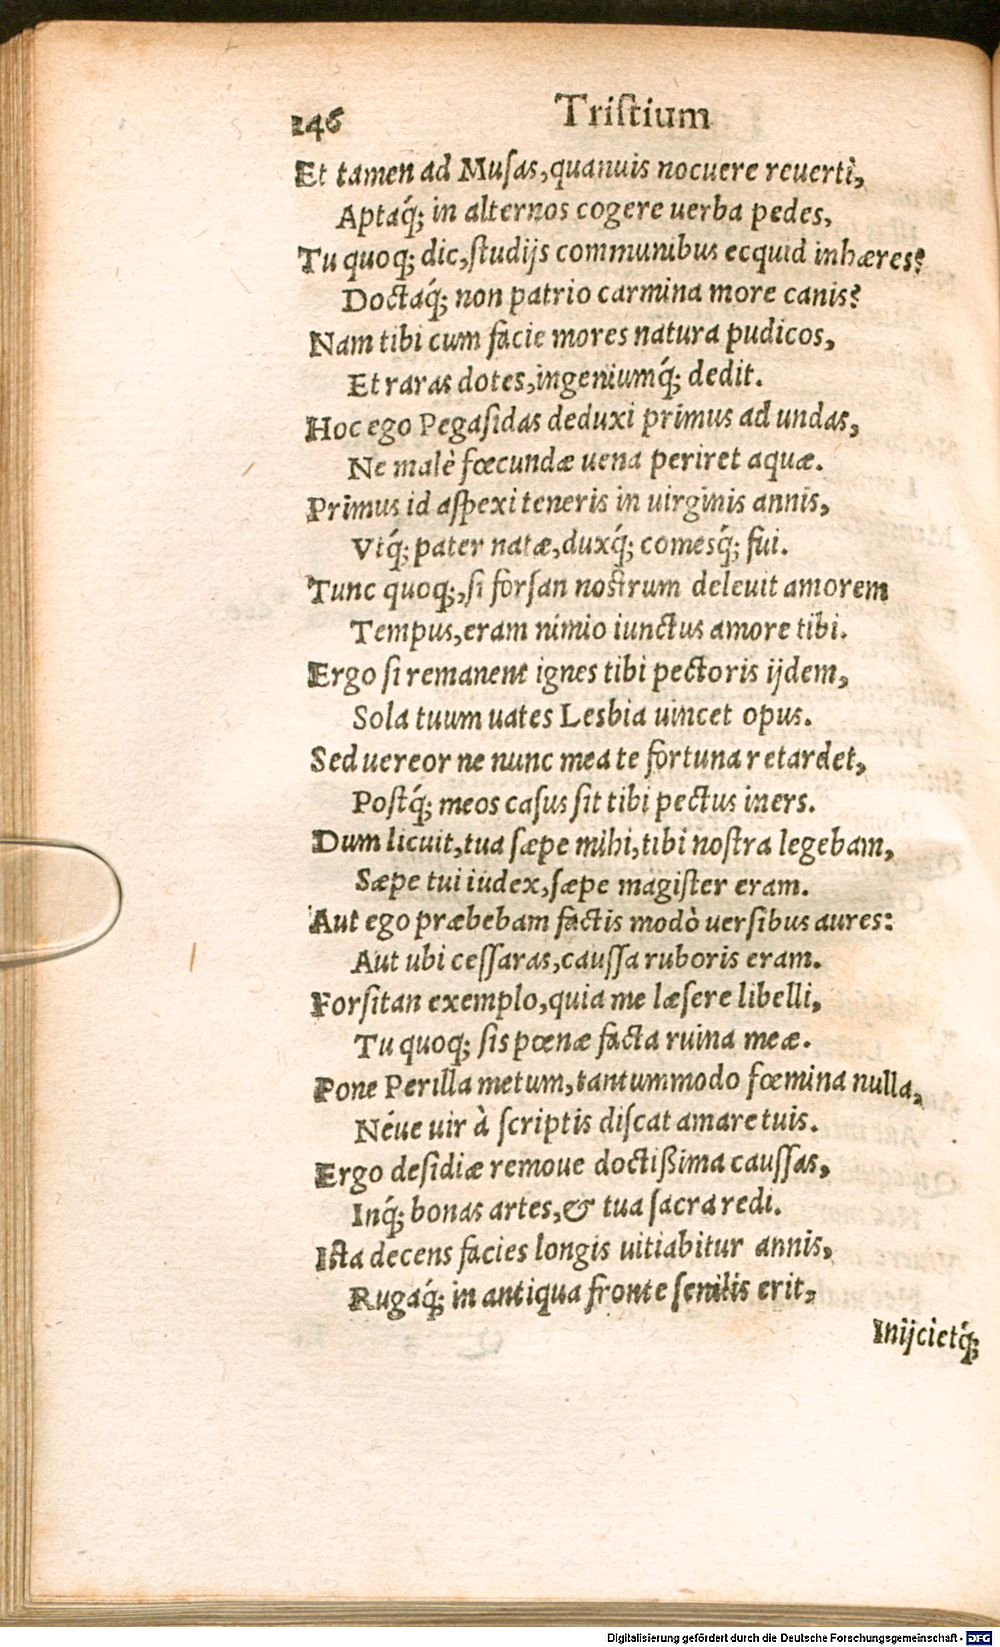 246 Tristium
Et tamen ad Musas, quanuis nocuere reuerti,
Aptaq́; in alternos cogere uerba pedes,
Tu quoq; dic, studijs communibus ecquid inhæres?
Doctaq́; non patrio carmina more canis?
Nam tibi cum facie mores natura pudicos,
Et raras dotes, ingeniumq́; dedit.
Hoc ego Pegasidas deduxi primus ad undas,
Ne malè fœcundæ uena periret aquæ.
Primus id aspexi teneris in uirginis annis,
Vtq́; pater natæ, duxq́; comesq́; fui.
Tunc quoq;, si forsan nostrum deleuit amorem
Tempus, eram nimio iunctus amore tibi.
Ergo si remanent ignes tibi pectoris ijdem,
Sola tuum uates Lesbia uincet opus.
Sed uereor ne nunc mea te fortuna retardet,
Postq́; meos casus sit tibi pectus iners.
Dum licuit, tua sæpe mihi, tibi nostra legebam,
Sæpe tui iudex, sæpe magister eram.
Aut ego præbebam factis modò uersibus aures:
Aut ubi cessaras, caussa ruboris eram.
Forsitan exemplo, quia me læsere libelli,
Tu quoq; sis pœnæ facta ruina meæ.
Pone Perilla metum, tantummodo fœmina nulla,
Néue uir à scriptis discat amare tuis.
Ergo desidiæ remoue doctißima caussas,
Inq́; bonas artes, & tua sacra redi.
Ista decens facies longis uitiabitur annis,
Rugaq́; in antiqua fronte senilis erit,
Inijcietq́;
Digitalisierung gefördert durch die Deutsche Forschungsgemeinschaft - DFG